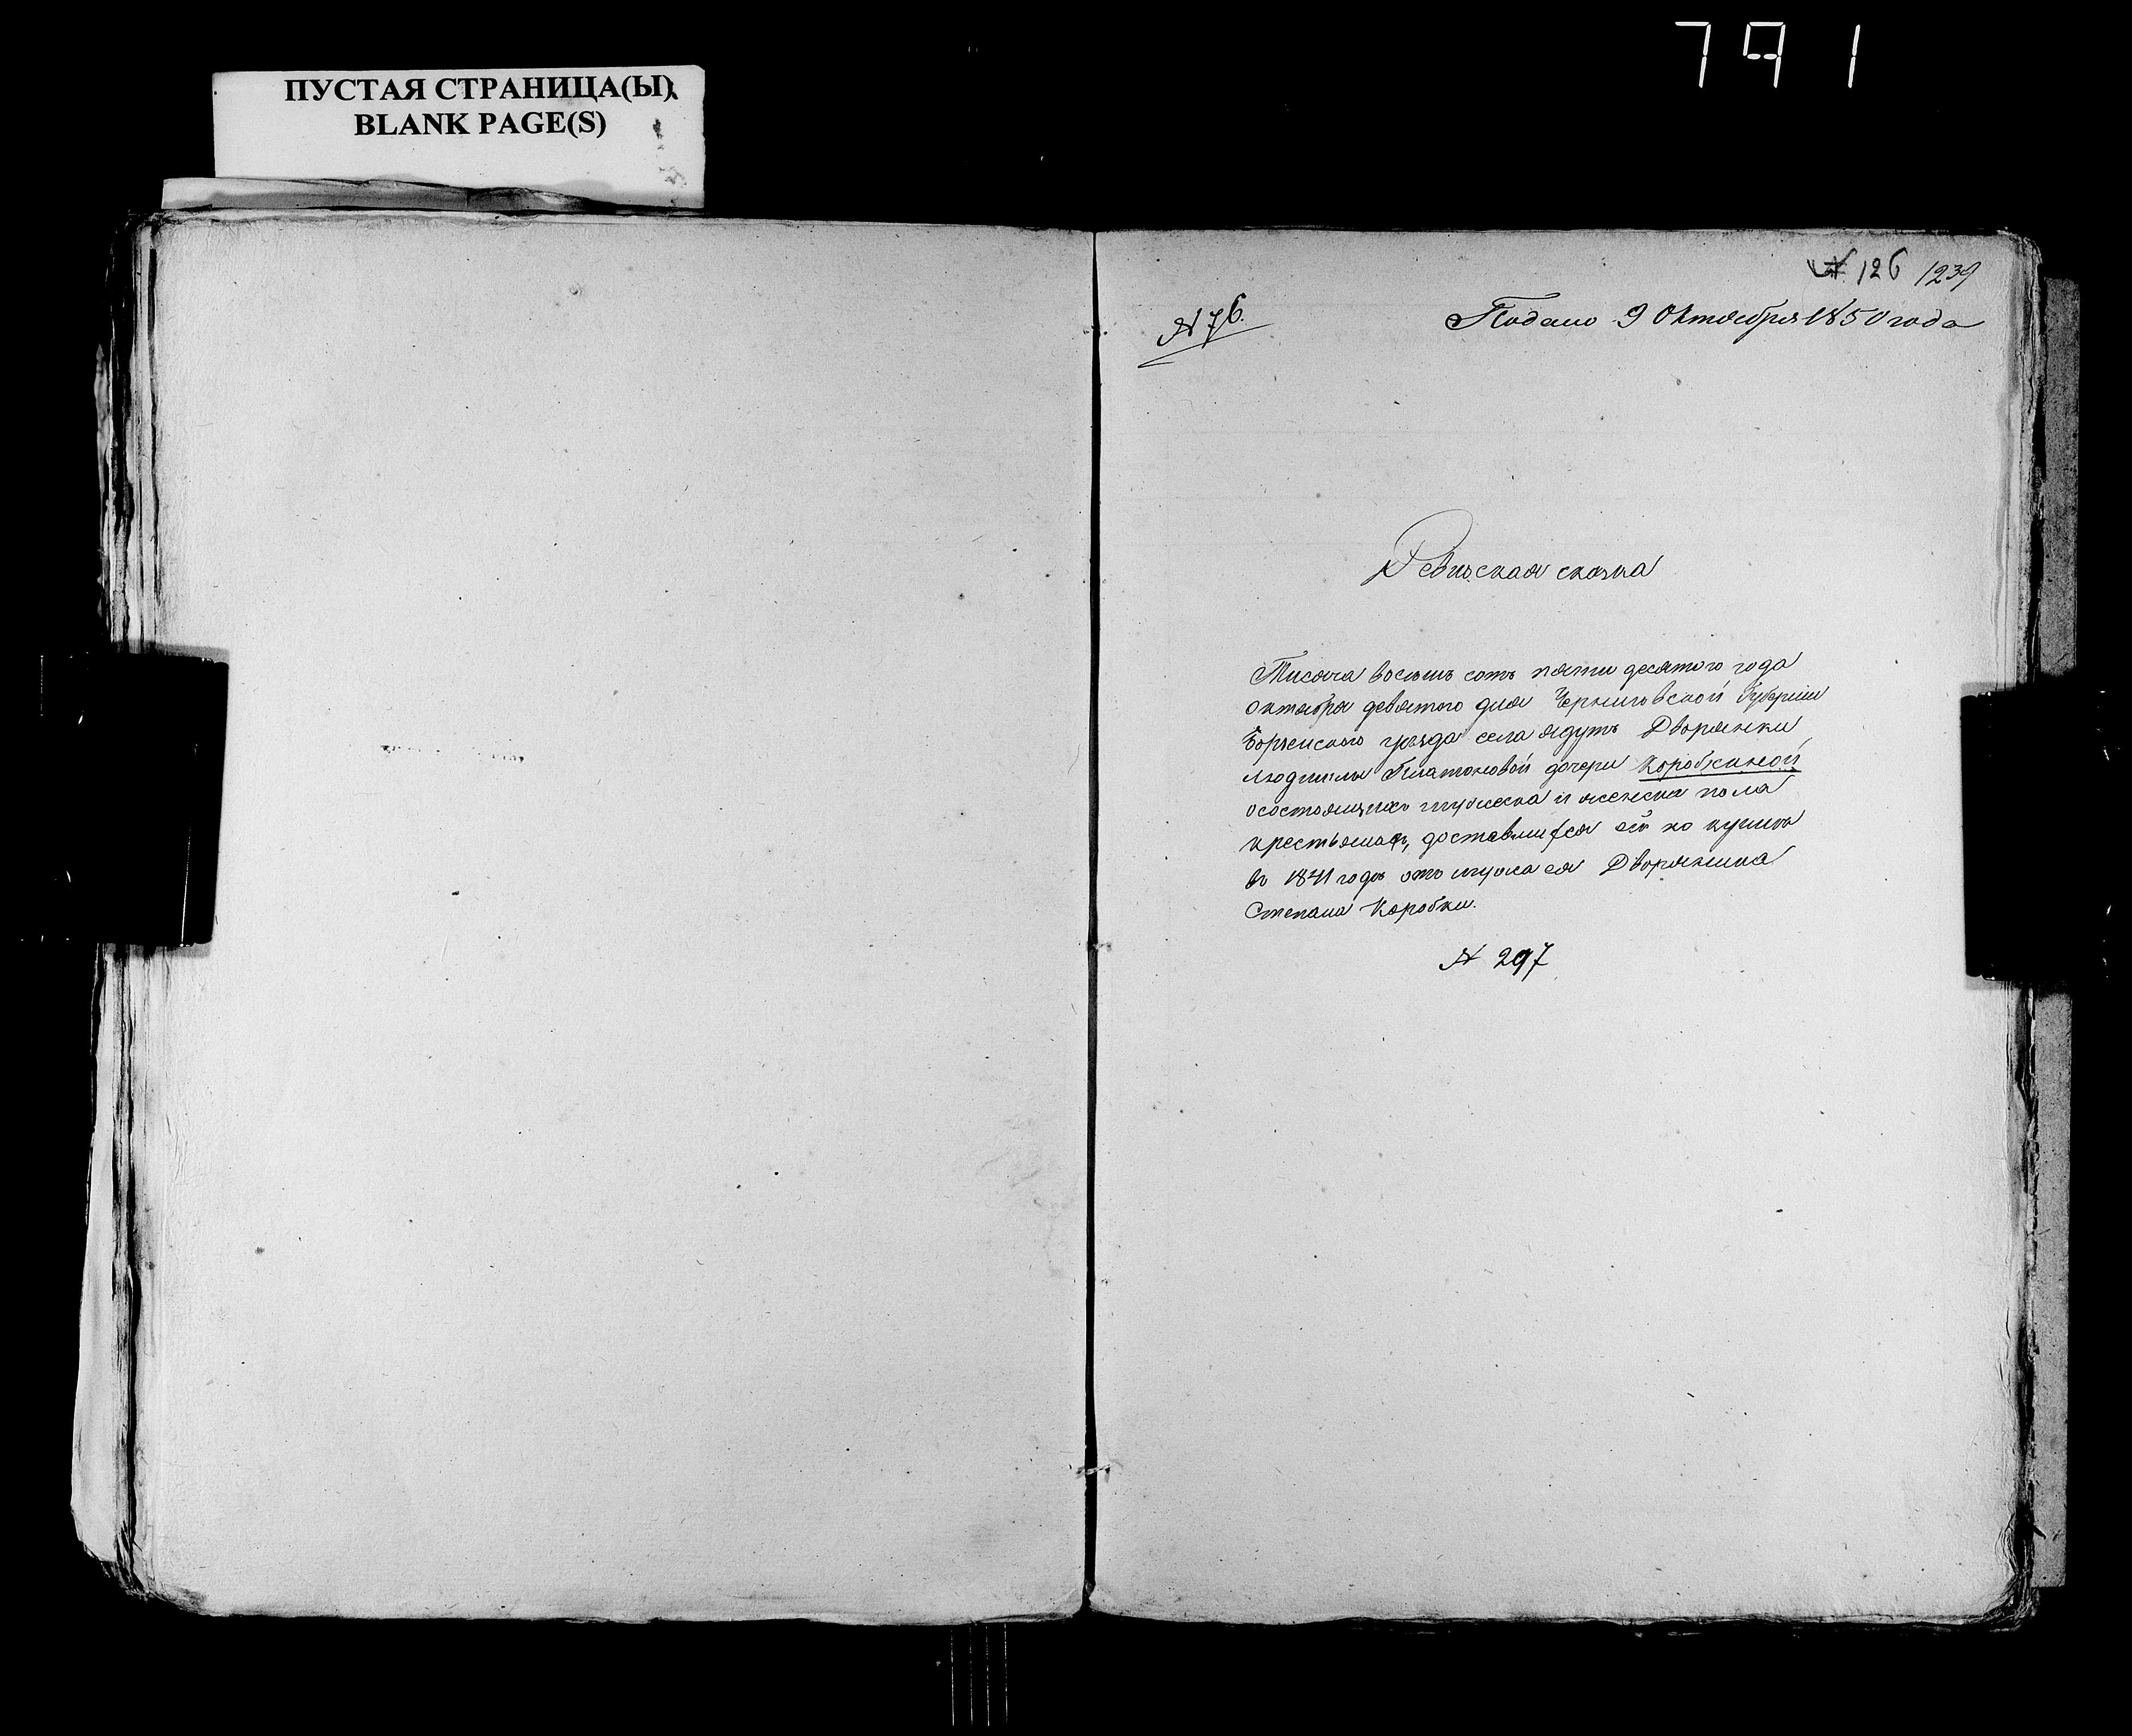 791
ПУСТАЯ СТРАНИЦА(Ы)
BLANK PAGE(S)
№ 126 1239
№ 76.
Подано 9 Октября 1850 года
Ревизская сказка
Тисяча восемь сотъ пяти десятого года
октября девятого дня Черниговской Губернии
Борзенского уезда села Ядутъ Дворянки
Людмилы Платоновой дочери Коробкиной
осостоящихъ мужеска и женска пола
крестьянах, доставшихся ей по купчей
в 1841 годе отъ мужа ея Дворянина
Степана Коробки.
№ 297